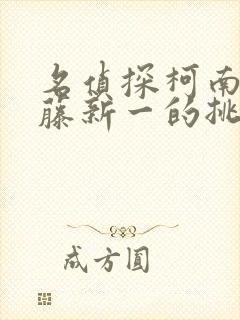 名偵探柯南
藤新一的挑
成方圓